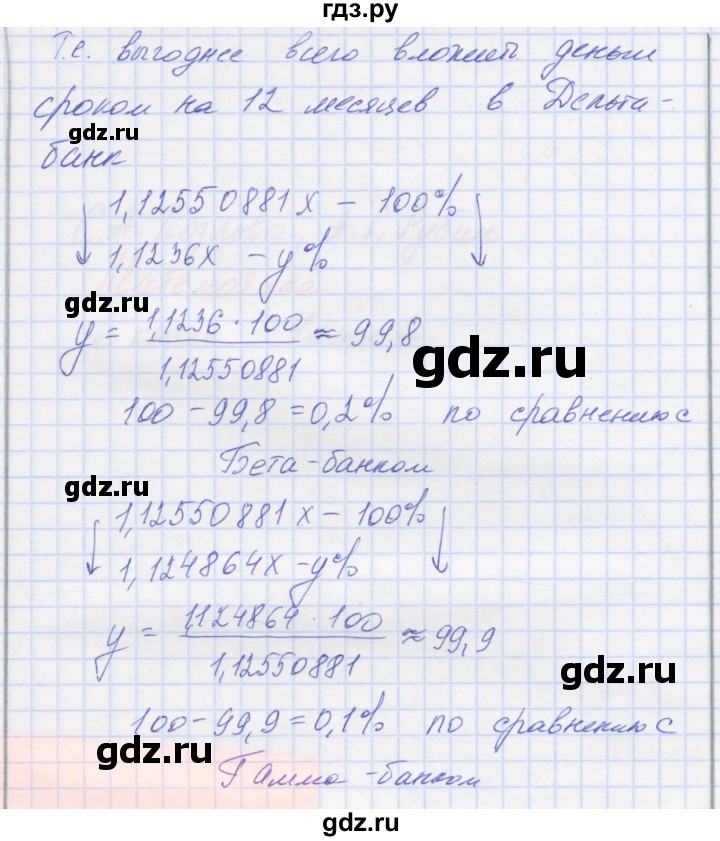 гдз.ру
Т.е. выгоднее всего вложить деньги
сроком на 12 месяцев в Дельта-
gdz.ru
банк
gdz.ru
1,12550881x – 100%
1,1236x – y%
gdz.ru
y = 1,1236 · 100 / 1,12550881 ≈ 99,8
gdz.ru
100 – 99,8 = 0,2% по сравнению с
gdz.ru
Бета-банком
gdz.ru
1,12550881x – 100%
1,124864x – y%
y = 1,124864 · 100 / 1,12550881 ≈ 99,9
gdz.ru
gdz.ru
100 – 99,9 = 0,1% по сравнению с
gdz.ru
Гамма-банком
gdz.ru
gdz.ru